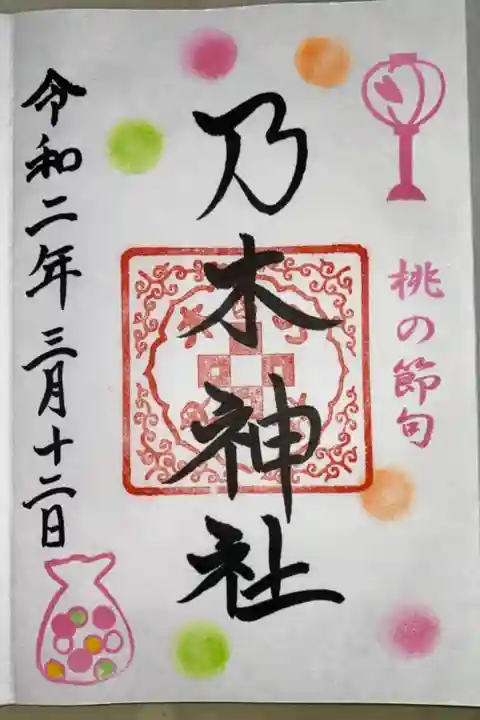 桃の節句
乃木神社
令和二年三月十二日